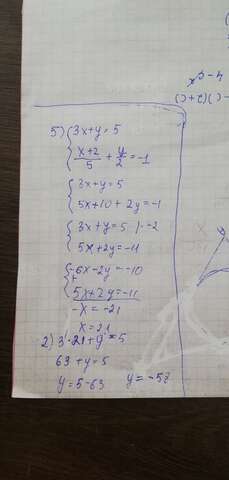 -c)(2+c)
4-c²
5) {3x+y=5
{x+2/5 + y/2 = -1
{3x+y=5
{5x+10+2y=-1
{3x+y=5 |·-2
{5x+2y=-11
{-6x-2y=-10
+
5x+2y=-11
-x=-21
x=21
2) 3·21+y=5
63+y=5
y=5-63 y=-58